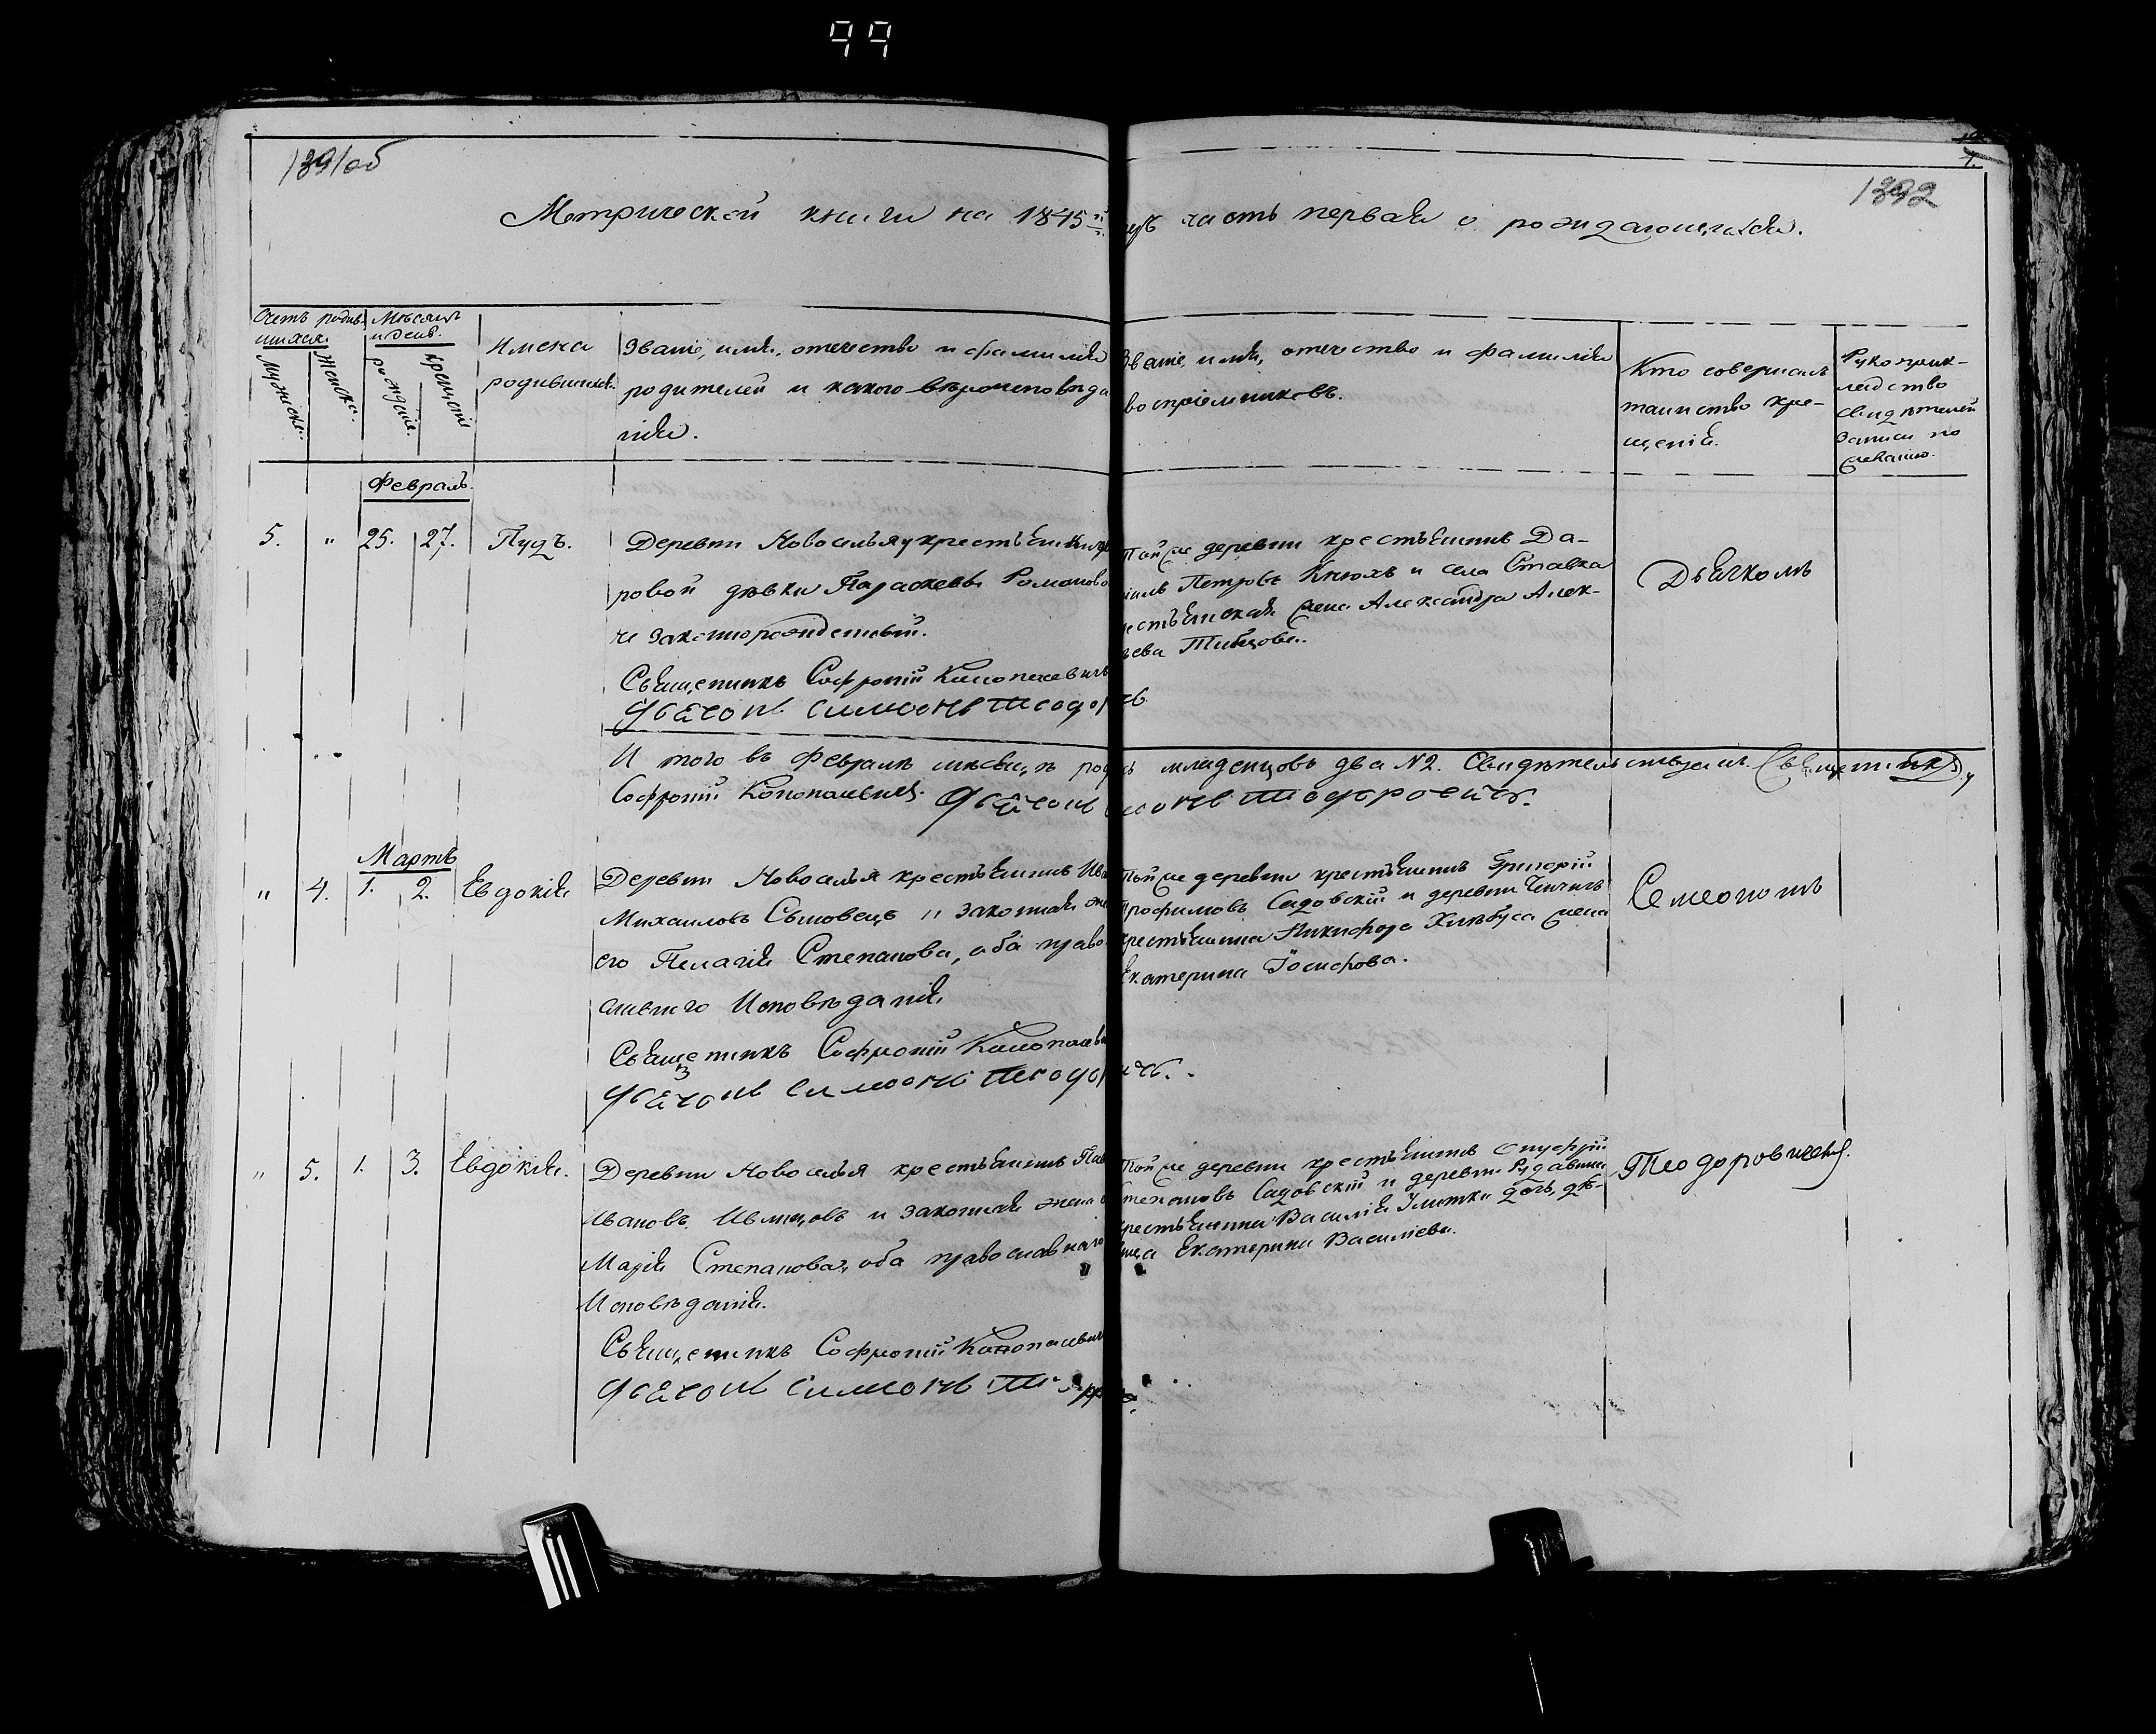 99
1391об
1392
Метрической книги на 1845й
часть первая о рождающихся.
Счетъ родив-
шихся.
Мужеска.
Женска.
Мѣсяцъ
и день.
рожденія.
крещенія
Имена
родившихся.
Званіе, имя, отечество и фамилія
родителей и какого вѣроисповѣда
нія.
Званіе, имя, отечество и фамилія
воспріемниковъ.
Кто совершалъ
таинство кре-
щенія.
Рукоприк-
ладство
свидѣтелей
записи по
желанію.
Февраль.
5. " 25. 27. Пудъ.
Деревни Новоселья у крестьянки
ровой дѣвки Параскевы Романово
незаконнорожденный.
Священникъ Софроній
Дьячокъ Симеонъ
Той же деревни крестьянинъ Да-
ніилъ Петровъ Кнюхъ и села Ставка
крестьянская жена Александра Алек-
ѣева
Дьячкомъ
И того въ Февралѣ мѣсяцѣ
младенцовъ два №2. Свидѣтельствуемъ. Священникъ
Софроній Дьячокъ
Мартъ
" 4. 1. 2. Евдокія
Деревни Новоселья крестьянинъ Ив
Михаиловъ Сыновецъ и законная же
его Пелагія Степанова, оба право
славнаго Исповѣданія
Священникъ Софроній
Дьячокъ Симеонъ
Той же деревни крестьянинъ Григорій
Трофимовъ Садовскій и деревни
крестьянина Никифора жена
Екатерина Іосифова.
Семеономъ
" 5. 1. 3. Евдокія.
Деревни Новоселья крестьянинъ Пав
Ивановъ и законная жена
Марія Степанова, оба православнаго
Исповѣданія.
Священникъ Софроній
Дьячокъ Симеонъ
Той же деревни крестьянинъ Онуфрій
Степановъ Садовскій и деревни
крестьянина Василія дочь, дѣ-
вица Екатерина Василіева.
Теодоровичемъ.